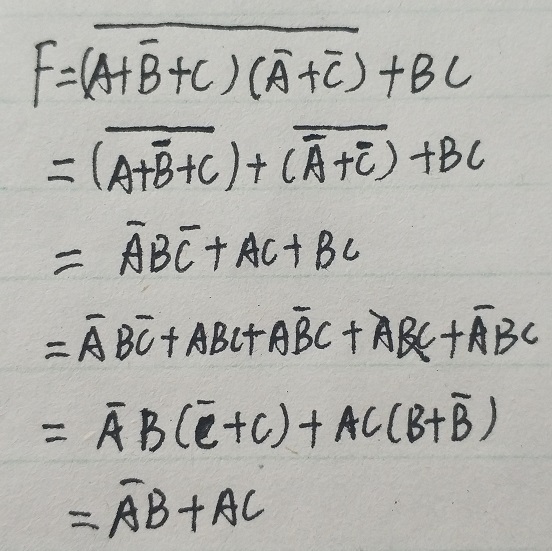 F=\overline{(A+\bar{B}+C)(\bar{A}+\bar{C})}+BC
=\overline{(A+\bar{B}+C)}+\overline{(\bar{A}+\bar{C})}+BC
=\bar{A}B\bar{C}+AC+BC
=\bar{A}B\bar{C}+ABC+A\bar{B}C+ABC+\bar{A}BC
=\bar{A}B(\bar{C}+C)+AC(B+\bar{B})
=\bar{A}B+AC